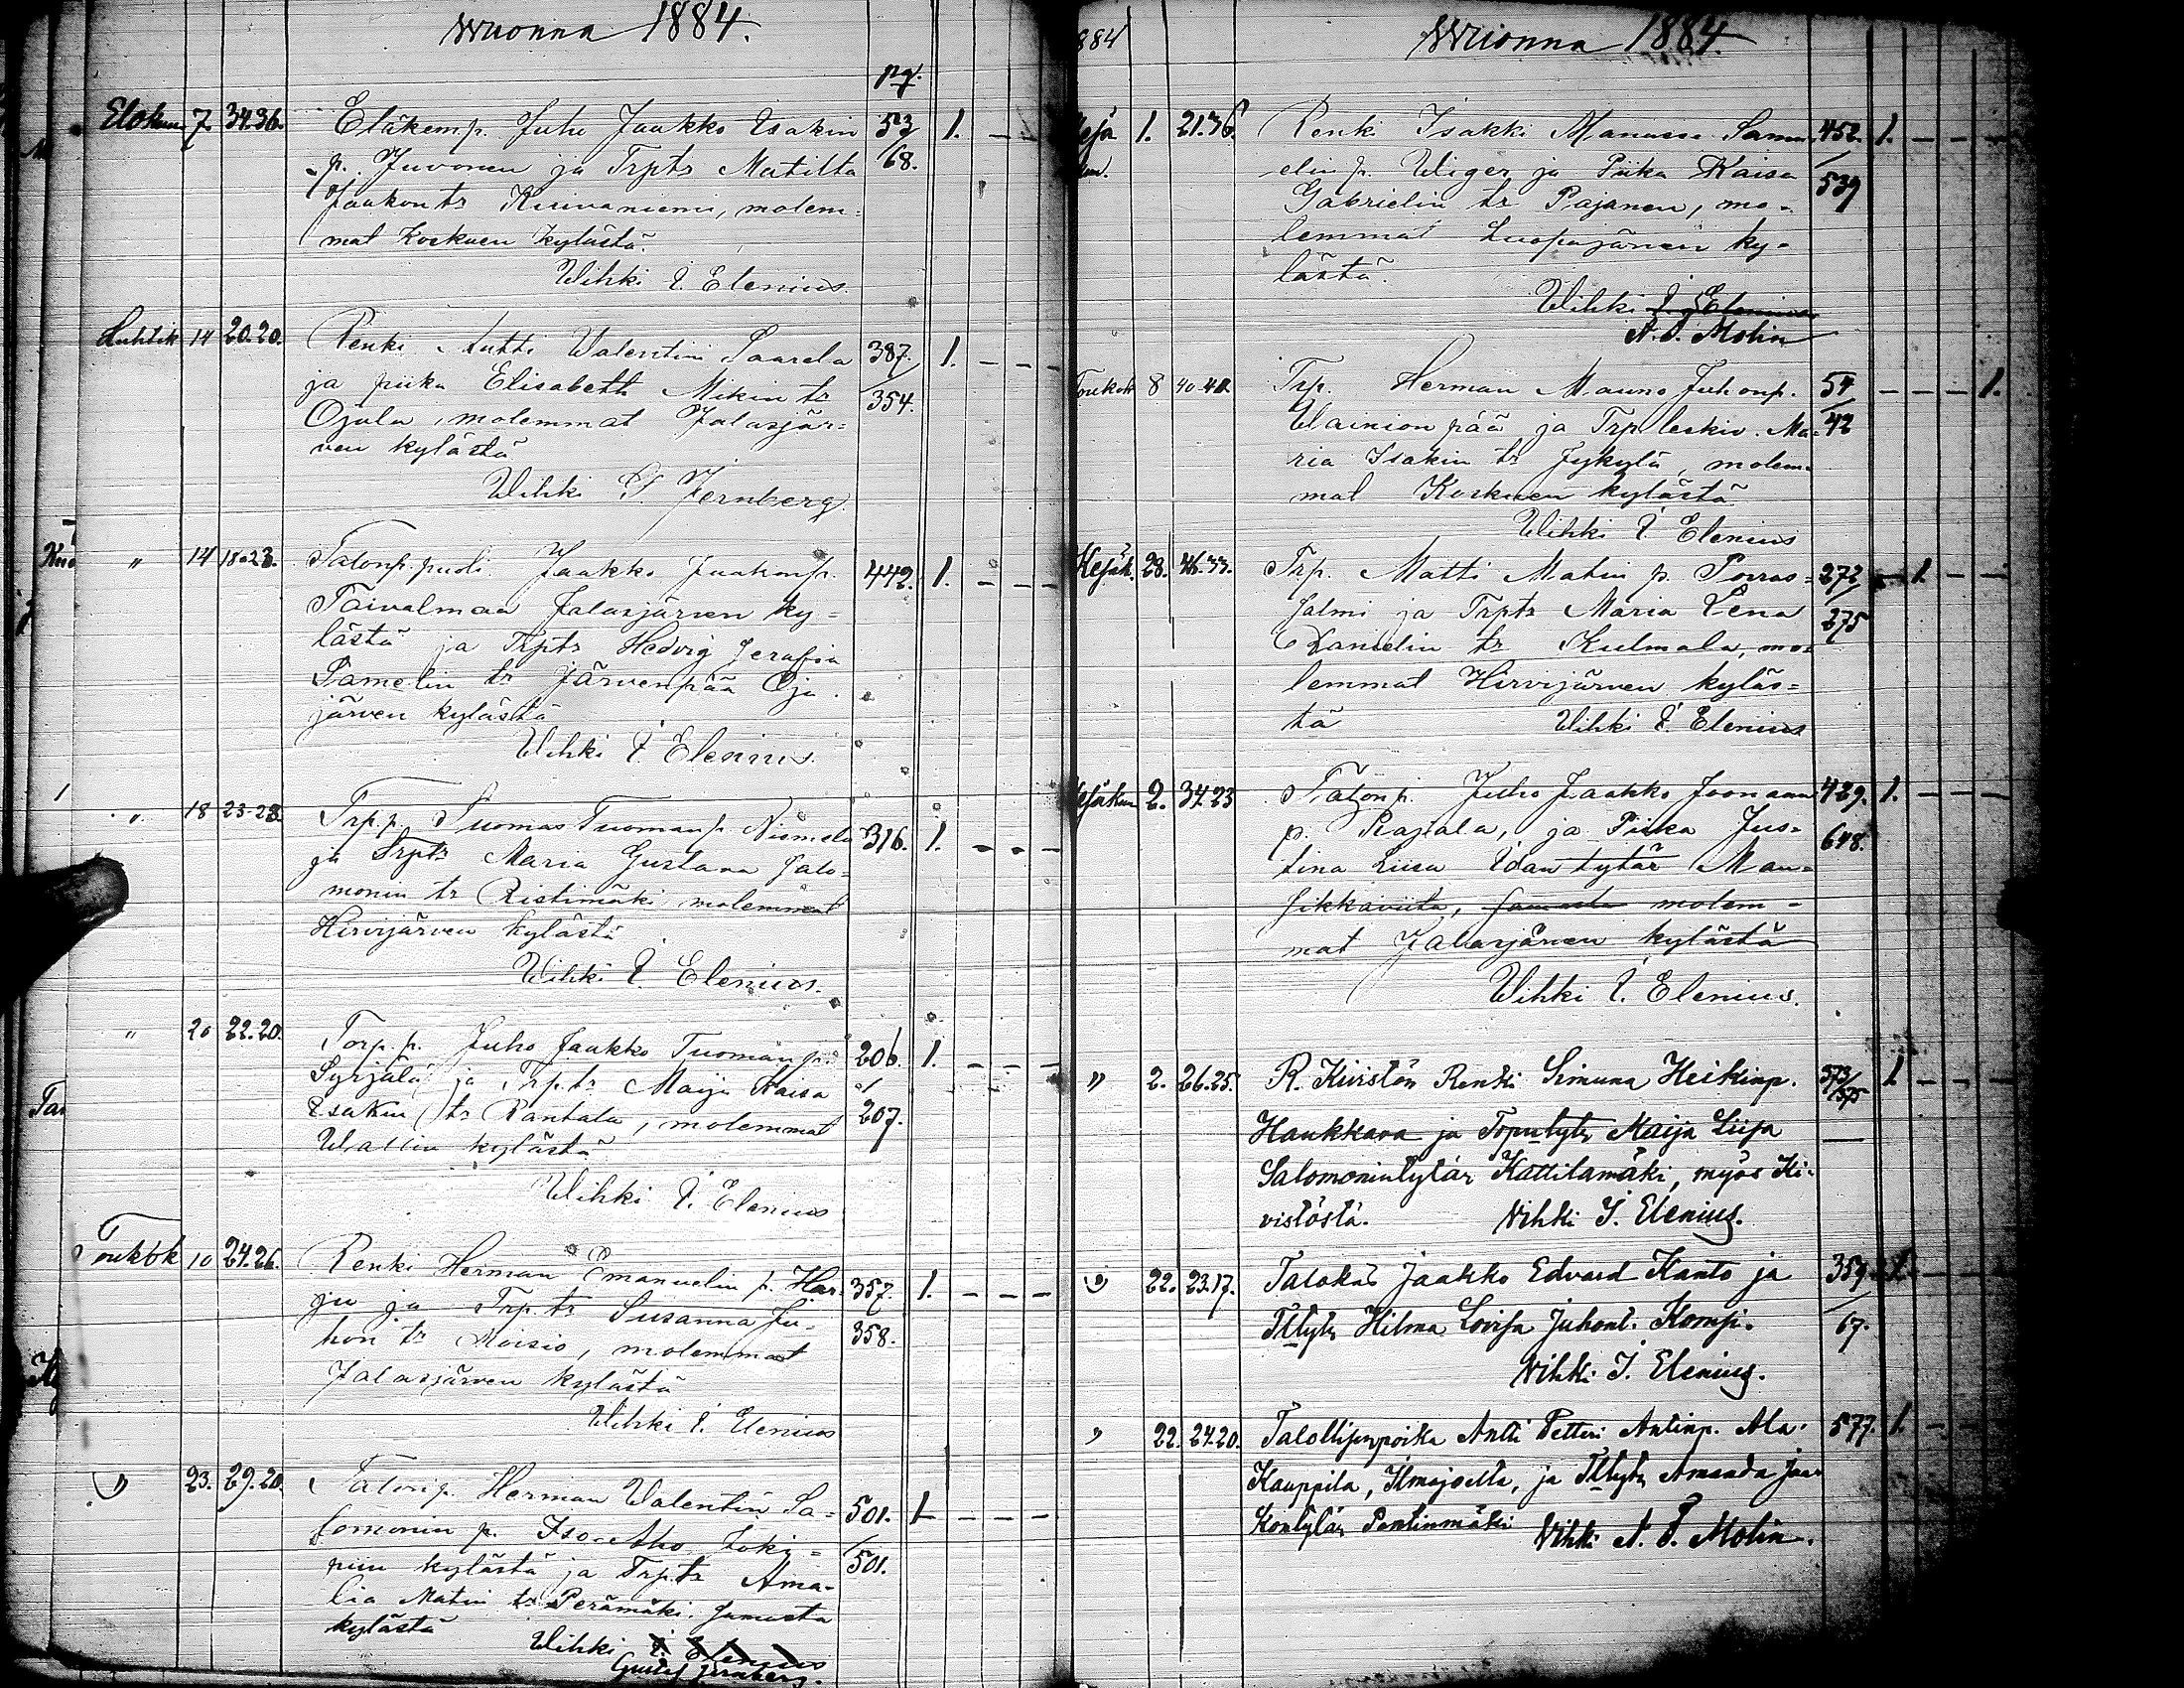 Wuonna 1884.
pg.
Elokuu 7. 34.36. Eläkem. p. Juho Jaakko Isakin 53/68. 1. - -
p. Juvonen ja Trpts Matilta
Jaakon tr Kuivaniemi, molem=
mat Koskuen kylästä.
Wihki I. Elenius.
Huhtik 14 20.20. Renki Antti Valentin Saarela 387/354. 1. - - -
ja piika Elisabeth Mikin tr
Ojala, molemmat Jalasjär=
ven kylästä
Wihki G Jernberg.
" 14 18-23. Talonp. puoli Jaakko Jaakonp. 442. 1. - - -
Taivalmaa Jalasjärven ky=
lästä ja Trpts Hedvig Serafia
Samelin tr Järvenpää Oja.
järven kylästä
Wihki I Elenius.
" 18 23-28. Trp.p. Tuomas Tuomanp. Niemelä 316. 1. - - -
ja Trpts Maria Gustava Salo=
monin tr Ristimäki molemmat
Hirvijärven kylästä
Wihki I. Elenius.
" 20 22.20. Torp. p. Juho Jaakko Tuomanp. 206/207. 1. - - -
Syrjälä ja Trp.tr Maija Kaisa
Isakin tr Rantala, molemmat
Wallin kylästä
Wihki I. Elenius
Toukok 10 24.26. Renki Herman Emanuelin p. Har= 357. 358. 1. - - -
ju ja Trp.tr Susanna Ju-
hon tr Koisio, molemmat
Jalasjärven kylästä
Wihki I. Elenius
" 23. 29.20. Talonp. Herman Valentin Sa= 501./501. 1 - - - -
lomonin p. Iso-Aho Joki=
piin kylästä ja Trp.tr Ama-
lia Matin tr Perämäki. Samasta
kylästä
Wihki I. Elenius
Gustaf Jernberg.
1884
Wuonna 1884.
Kesä 1. 21.36. Renki Isakki Manasse Samu- 452./539 1. - - -
kuu. elin p. Wiger ja Piika Kaisa
Gabrielin tr Pajanen, mo-
lemmat Luopajärven ky-
lästä.
Wihki I. Elenius
A. I. Molin
Toukok 8 40-41. Trp. Herman Mauno Juhonp. 54/42 - - - 1.
Wainionpää ja Trp. leskiv. Ma=
ria Isakin tr Jykylä, molem-
mat Koskuen kylästä
Wihki I Elenius
Kesäk. 28. 46.33. Trp. Matti Matin p. Porras= 272/275 - 1 - - -
salmi ja Trpts Maria Lena
Danielin tr Kulmala, mo=
lemmat Hirvijärven kyläs=
tä Wihki I. Elenius
Kesäkuu 2. 34.23 Talonp. Juho Jaakko Joonaan 429./648. 1. - - -
p. Rajala, ja Piika Jus=
tina Liisa Idan tytär Man=
sikkaviita, samasta molem-
mat Jalasjärven kylästä
Wihki I. Elenius.
" 2. 26.25. R. Kivistön Renki Simuna Heikinp. 573/575 1 - - -
Haukkara ja Torp.tytr Maija Liisa
Salomonintytär Kattilamäki, myös Ki-
vistöstä. Vihki I. Elenius.
" 22. 23.17. Talokas Jaakko Edvard Kanto ja 359/67. 1 - - -
Tltytr Hilma Lovisa Juhont. Komsi.
Vihki I. Elenius.
" 22. 24.20. Talollisenpoika Antti Petteri Antinp. Ala- 577. 1. - -
Kauppila, Ilmajoelta, ja Tltytr Amanda Jaa-
kontytär Pentinmäki Vihki A. I. Molin.